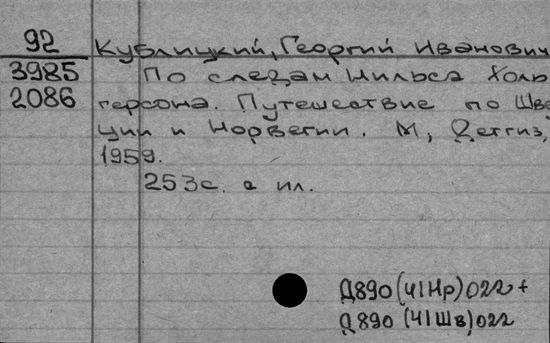 92
Кублицкий, Георгий Иванович
3985
По следам Нильса Холь
2086
герсона. Путешествие по Шве
ции и Норвегии. М, Детгиз,
1959.
253с. с ил.
Д890(41Нр)022 +
Д890 (41Шв)022